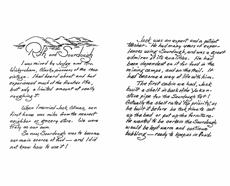 Ruth and Sourdough
I was raised by
had heard about and had
experienced much of the
but only a limited amount of really
"roughing it."
When I married Jack
first home was miles from the nearest
neighbor or grocery store. We were
truly on our own.
So our Sourdough was to become
our main source of food — and I did
not know how to use it!
Jack was an expert and a patient
teacher. He had many years of exper-
ience using Sourdough, and was a great
admirer of its qualities. He had
been dependent on it for food in the
mining camps, and on the trail. It
had become a way of life with him.
The first cabin we had, Jack
built a shelf in back of the Yukon-
stove pipe for the Sourdough Pot!
the shelf rated top priority, as
he built it before he had time to set
up the bed or put up the furniture.
He wanted to be certain the Sourdough
would be kept warm and continue
bubbling — ready to appease or food.